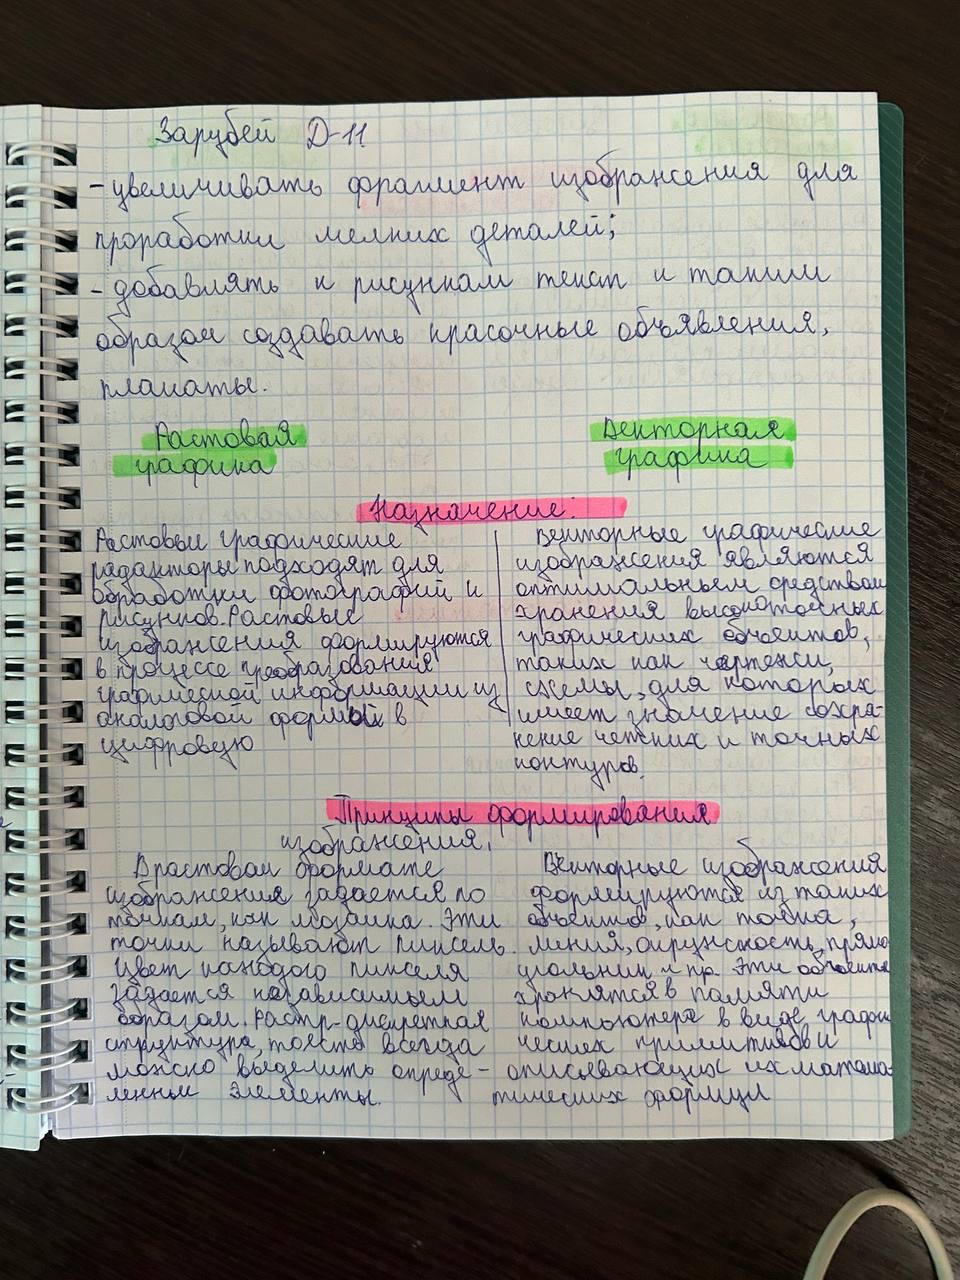 Зарубей Д-11
- увеличивать фрагмент изображения для
проработки мелких деталей;
- добавлять к рисункам текст и таким
образом создавать красочные объявления,
плакаты.
Растовая
графика
Векторная
графика
Назначение:
Растовые графические
радакторы подходят для
обработки фотографий и
рисунков. Растовые
изображения формируются
в процессе преобразования
графической информации из
аналоговой формы в
цифровую
Векторные графические
изображения являются
оптимальным средством
хранения высокоточных
графических объектов,
таких как чертежи,
схемы, для которых
имеет значение сохра-
нение четких и точных
контуров.
Принципы формирования
изображения.
В растовом формате
изображения задается по
точкам, как мозаика. Эти
точки называют пиксель.
Цвет каждого пикселя
задается независимым
образом. Растр-дискретная
структура, тоесть всегда
можно выделить опреде-
ленные элементы.
Векторные изображения
формируются из таких
объектов, как точка,
линия, окружность, прямо
угольник и пр. Эти объекты
хранятся в памяти
компьютера в виде графи
ческих примитивов и
описывающих их матема-
тических формул